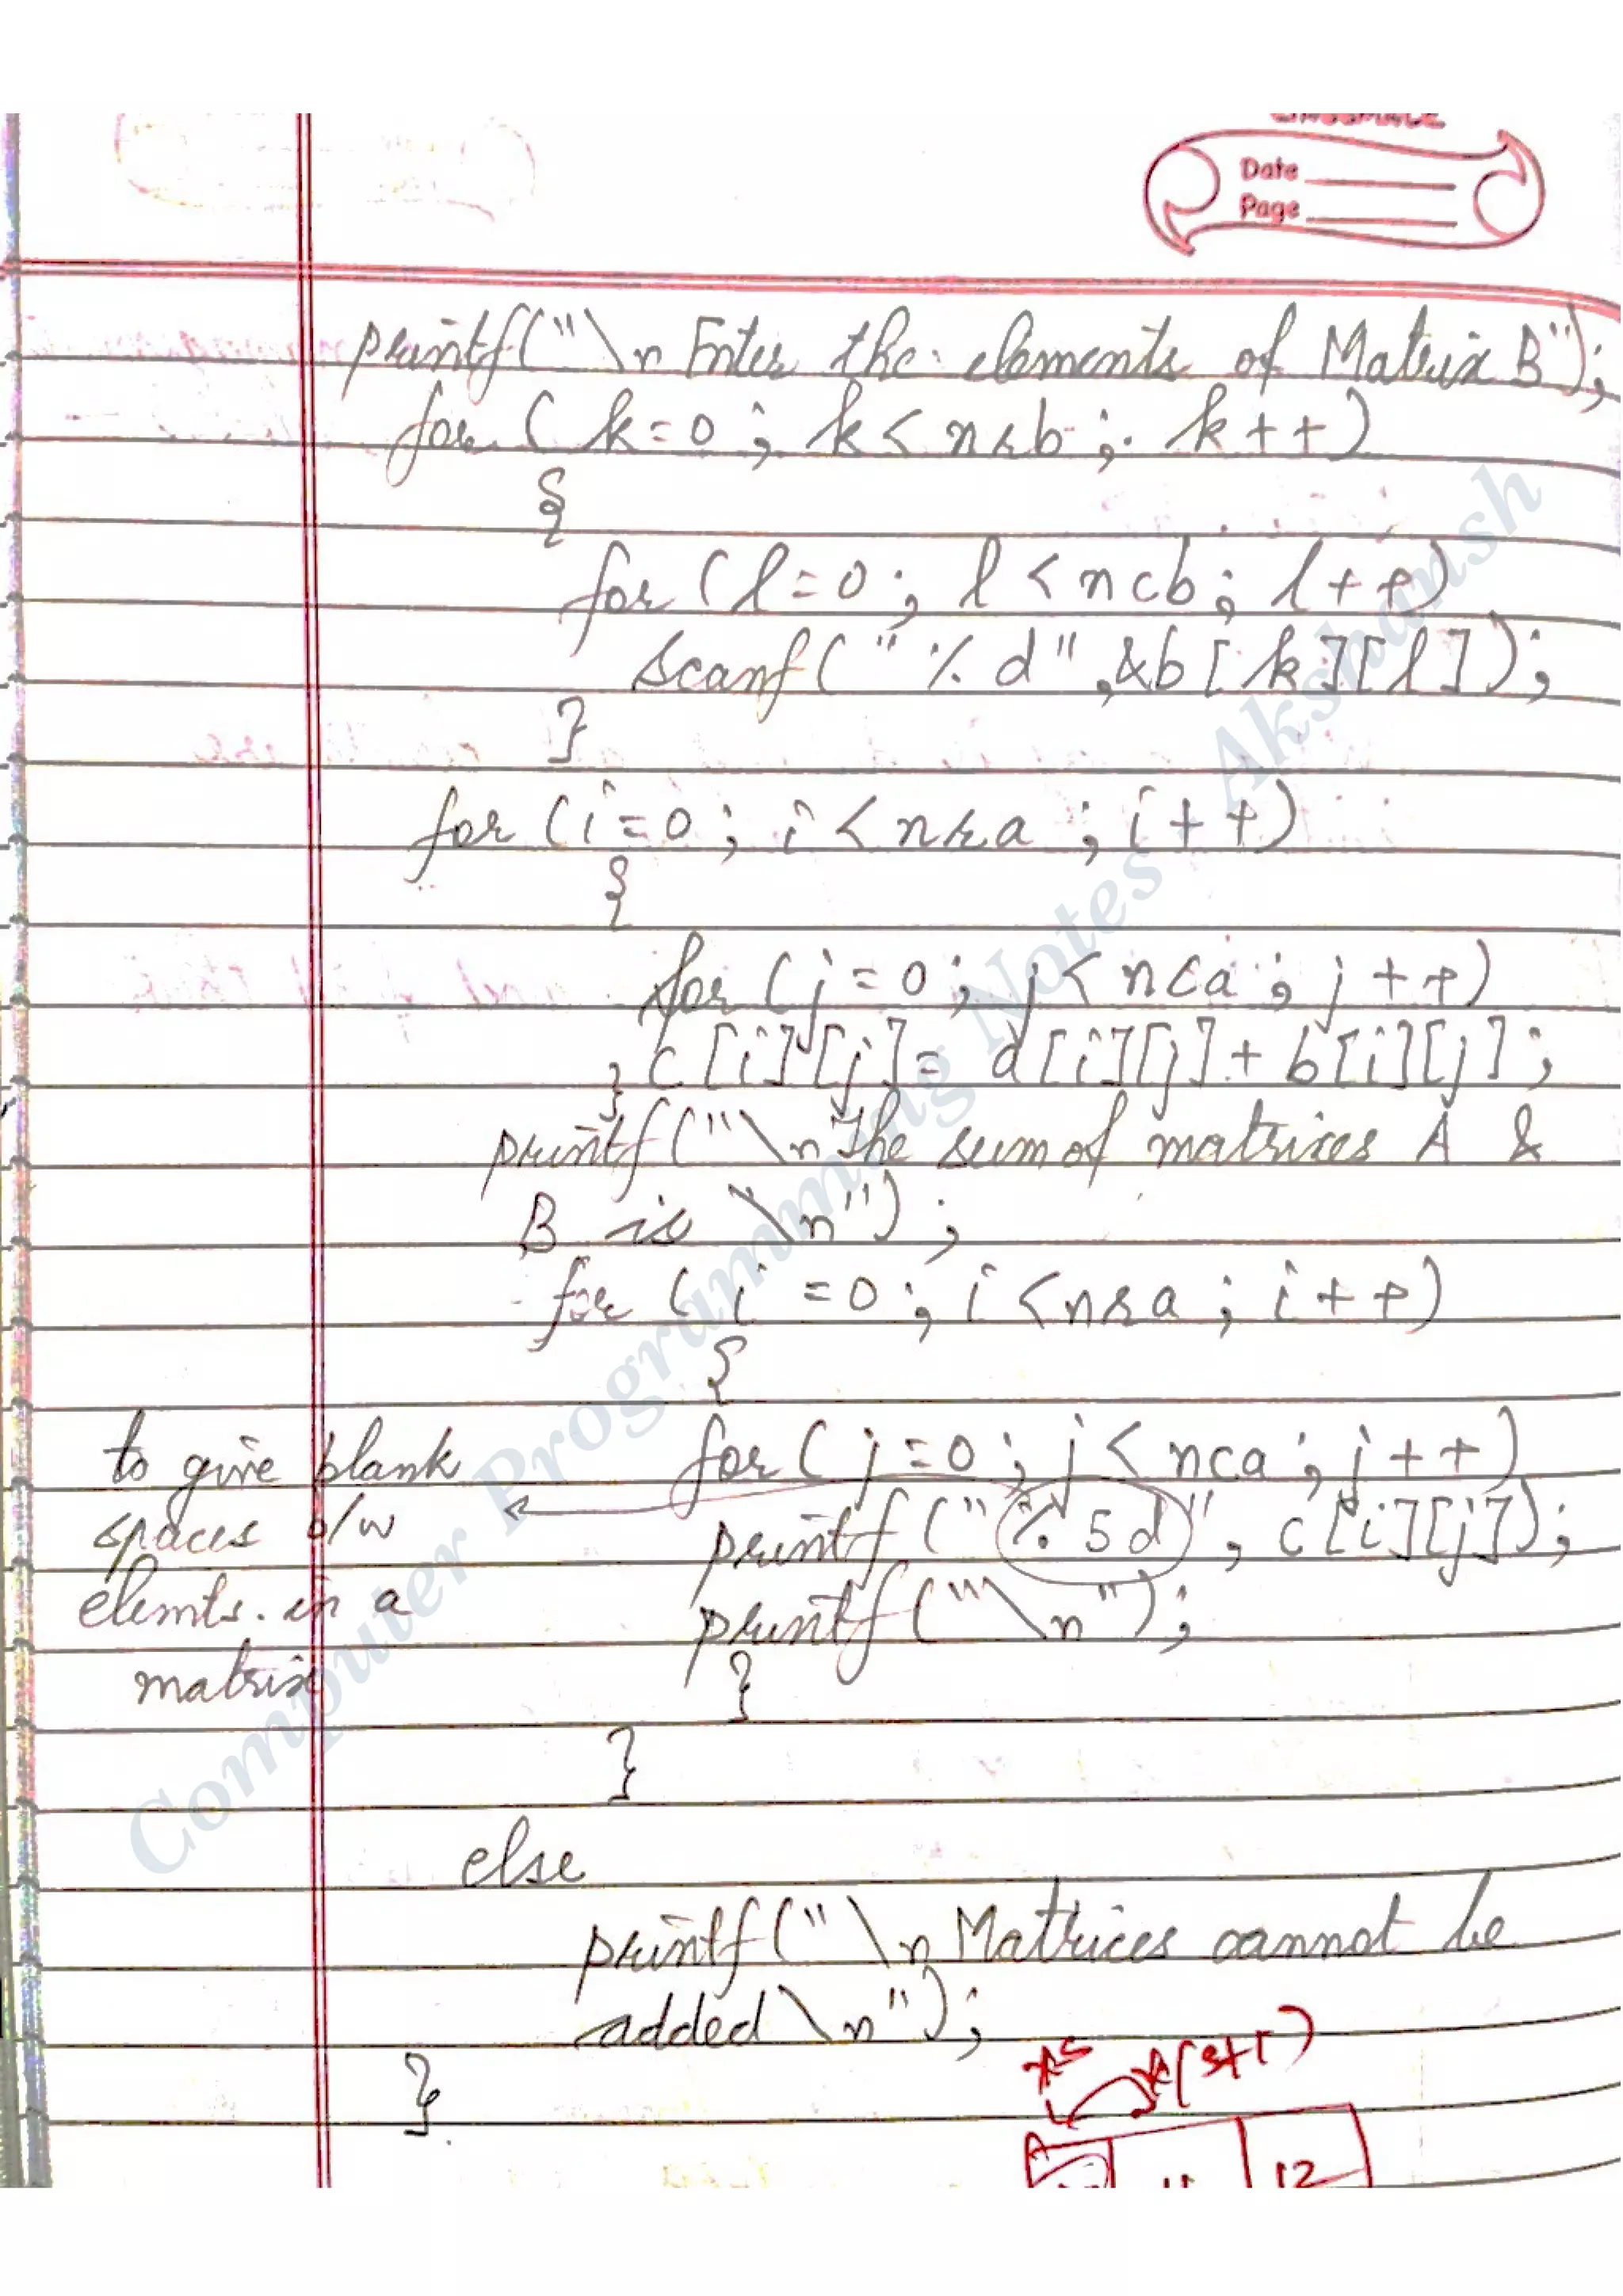 Date
Page
printf("\n Enter the elements of Matrix B");
for ( k=0 ; k< nrb ; k++)
{
for (l=0 ; l<ncb ; l++)
scanf("%d",&b[k][l]);
}
for (i=0 ; i<nra ; i++)
{
for (j=0 ; j<nca ; j++)
} c[i][j]= d[i][j]+ b[i][j];
printf("\n The sum of matrixes A &
B is \n");
for ( i =0 ; i<nra ; i++)
{
to give blank for ( j=0 ; j< nca ; j++)
spaces b/w printf ("%5d", c[i][j]);
elemts. in a printf ("\n");
matrix }
}
else
printf("\n Matrices cannot be
added \n");
}
(s+1)
11 12
Computer Programming Notes Akshansh